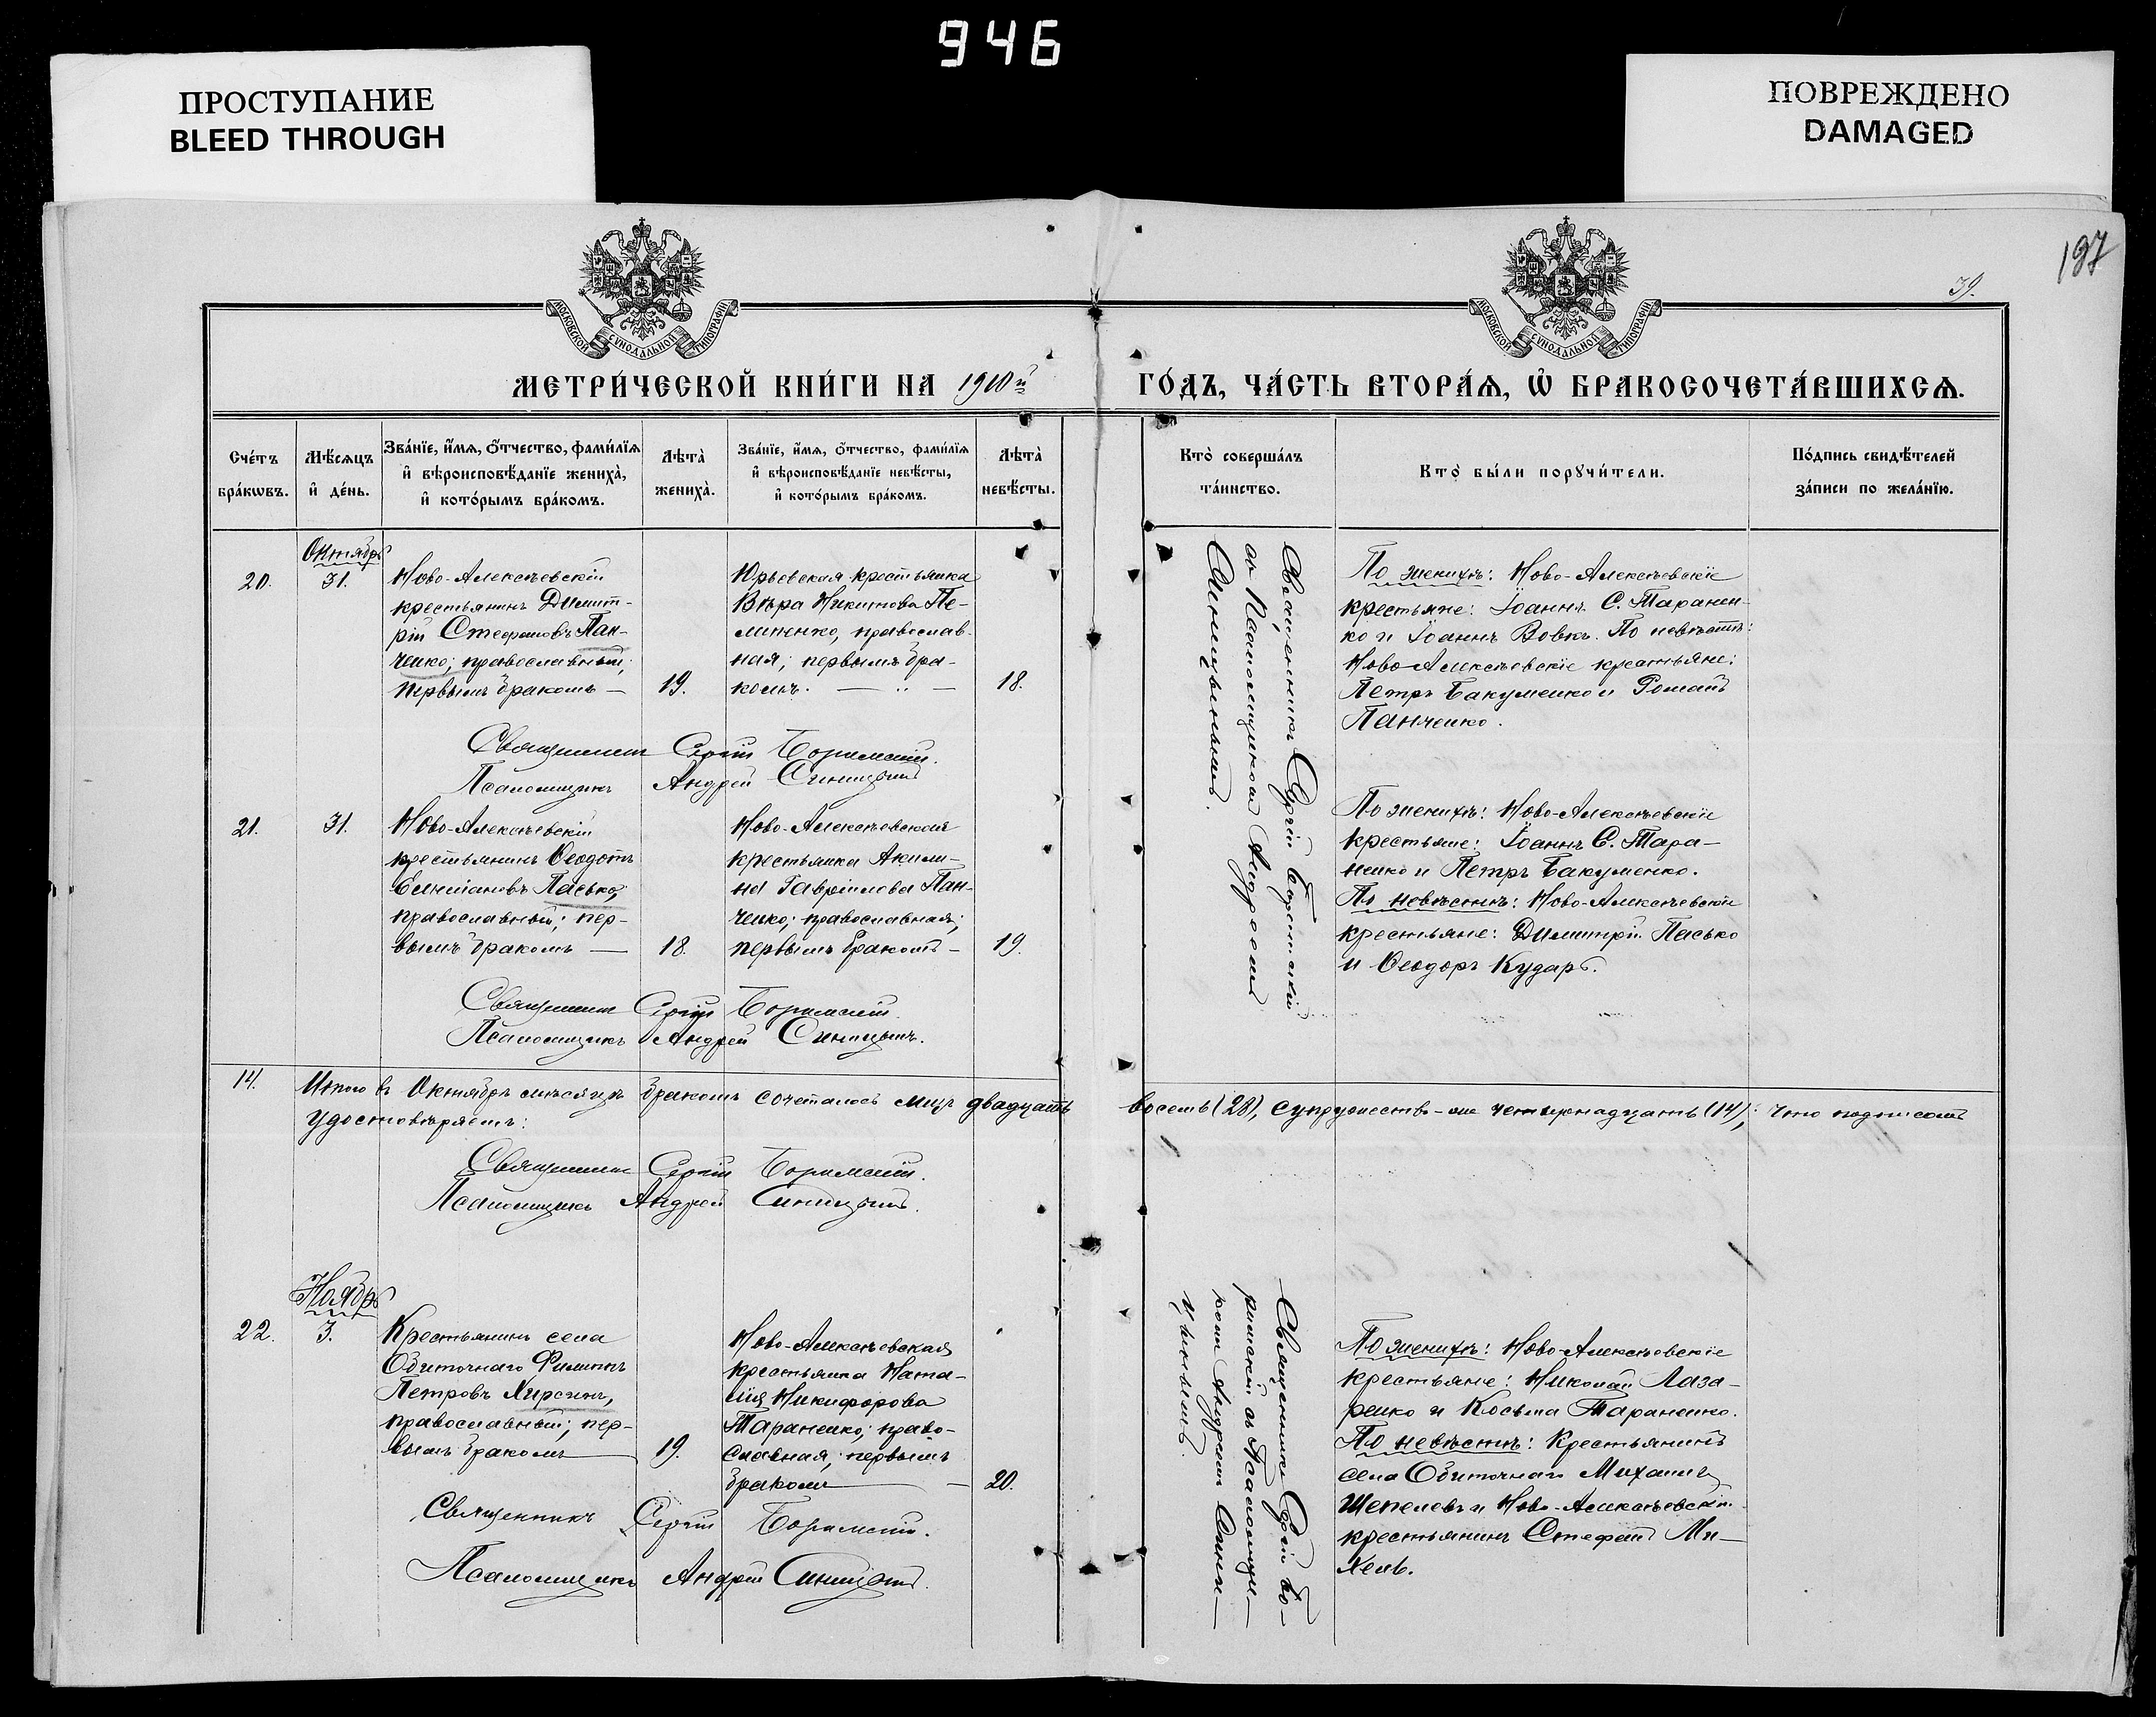 946
ПРОСТУПАНИЕ
BLEED THROUGH
ПОВРЕЖДЕНО
DAMAGED
197
39.
МОСКОВСКОЙ СѴНОДАЛЬНОЙ ТИПОГРАФІИ
МОСКОВСКОЙ СѴНОДАЛЬНОЙ ТИПОГРАФІИ
МЕТРИ́ЧЕСКОЙ КНИ́ГИ НА 1910й ГО́ДЪ, ЧА́СТЬ ВТОРА́Ѧ, Ѡ҆ БРАКОСОЧЕТА́ВШИХСѦ.
Сче́тъ
бра́кѡвъ.
Мѣ́сяцъ
и҆ де́нь.
Зва́нїе, и҆́мѧ, ѻ҆́тчество, фами́лїѧ
и҆ вѣроисповѣ́данїе жениха̀,
и҆ кото́рымъ бра́комъ.
Лѣта̀
жениха̀.
Зва́нїе, и҆́мѧ, ѻ҆́тчество, фами́лїѧ
и҆ вѣроисповѣ́данїе невѣ́сты,
и҆ кото́рымъ бра́комъ.
Лѣта̀
невѣ́сты.
Кто̀ соверша́лъ
та́инство.
Кто̀ бы́ли порꙋчи́тели.
По́дпись свидѣ́телей
за́писи по жела́нїю.
Октябрь
20.
31.
Ново-Алексѣевскій
крестьянинъ Димит-
рій Стефановъ Пан-
ченко; православный;
первымъ бракомъ —
19.
Юрьевская крестьянка
Вѣра Никитова Пе-
липенко, православ-
ная; первымъ бра-
комъ. — „ —
18.
Священникъ Сергій Боримскій
съ Псаломщикомъ Андреемъ
Синицынымъ.
По женихѣ: Ново-Алексѣевскіе
крестьяне: Іоаннъ С. Таранен-
ко и Іоаннъ Вовкъ. По невѣстѣ:
Ново-Алексѣевскіе крестьяне:
Петръ Бакуменко и Романъ
Панченко.
Священникъ Сергій Боримскій.
Псаломщикъ Андрей Синицынъ
21.
31.
Ново-Алексѣевскій
крестьянинъ Ѳеодотъ
Емиліановъ Пасько,
православный; пер-
вымъ бракомъ —
18.
Ново-Алексѣевская
крестьянка Акили-
на Гавріилова Пан-
ченко; православная;
первымъ бракомъ —
19.
По женихѣ: Ново-Алексѣевскіе
крестьяне: Іоаннъ С. Тара-
ненко и Петръ Бакуменко.
По невѣстѣ: Ново-Алексѣевскіе
крестьяне: Димитрій Пасько
и Ѳеодоръ Кударь.
Священникъ Сергій Боримскій.
Псаломщикъ Андрей Синицынъ.
14.
Итого въ Октябрѣ мѣсяцѣ бракомъ сочеталось лицъ двадцать восемь (28), супружествъ-же четырнадцать (14), что подписомъ
удостовѣряемъ:
Священникъ Сергій Боримскій.
Псаломщикъ Андрей Синицынъ.
Ноябрь
22.
3.
Крестьянинъ села
Обиточнаго Филиппъ
Петровъ Хирсинъ,
православный; пер-
вымъ бракомъ
19.
Ново-Алексѣевская
крестьянка Ната-
лія Никифорова
Тараненко; право-
славная; первымъ
бракомъ —
20.
Священникъ Сергій Бо-
римскій съ Псаломщи-
комъ Андреемъ Сини-
цынымъ.
По женихѣ: Ново-Алексѣевскіе
крестьяне: Николай Лаза-
ренко и Косьма Тараненко.
По невѣстѣ: Крестьянинъ
села Обиточнаго Михаилъ
Шепелевъ и Ново-Алексѣевскій
крестьянинъ Стефанъ Ми-
хель.
Священникъ Сергій Боримскій.
Псаломщикъ Андрей Синицынъ.